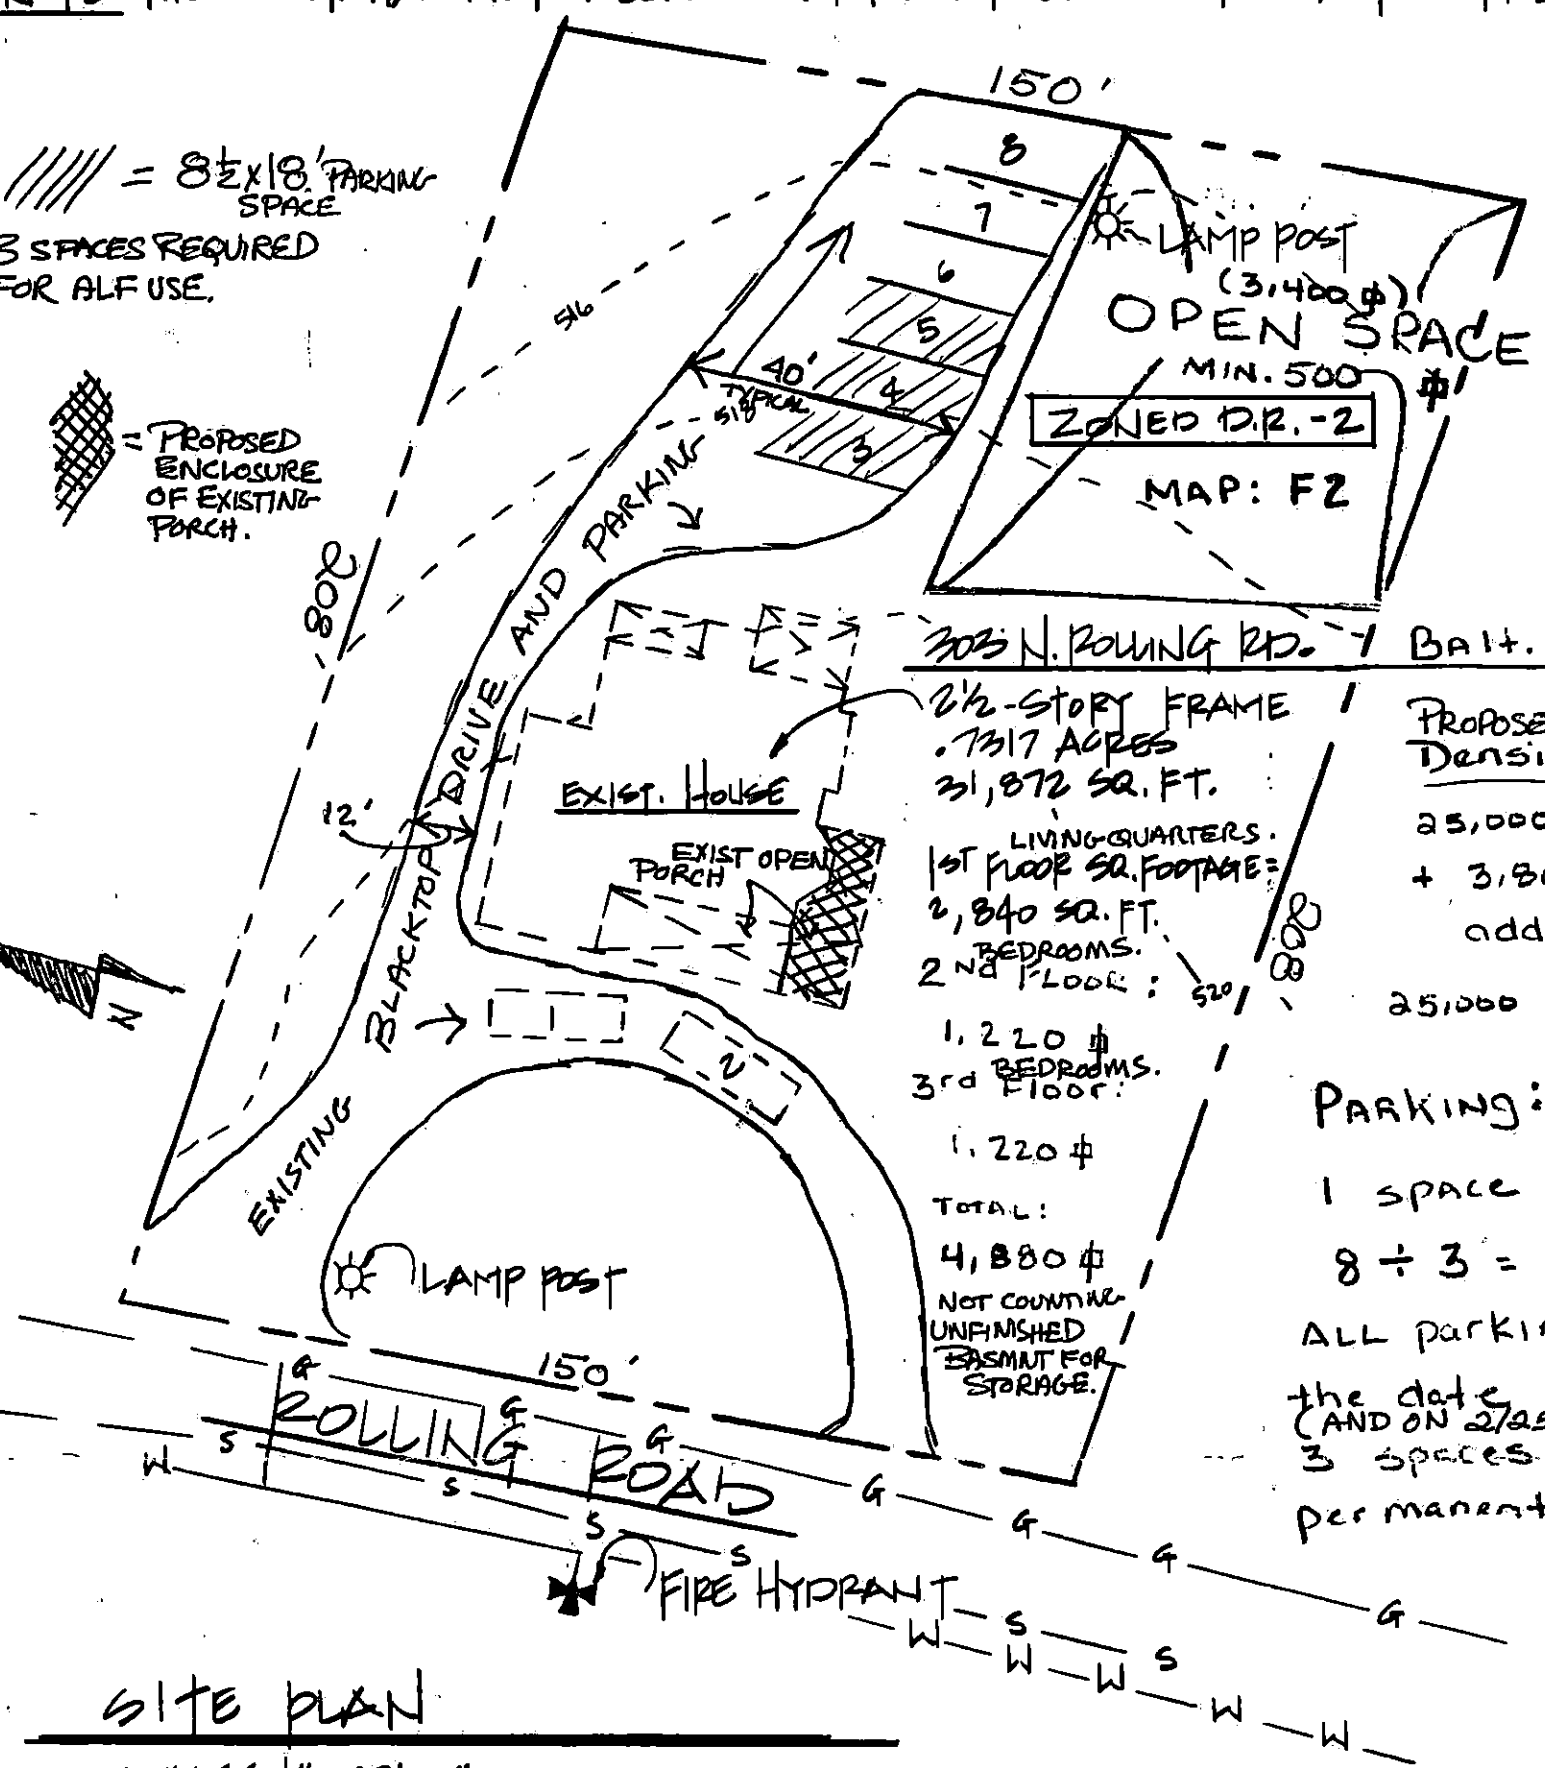 150'
= 8½x18' PARKING
SPACE
3 SPACES REQUIRED
FOR ALF USE.
= PROPOSED
ENCLOSURE
OF EXISTING
PORCH.
8
7
6
5
4
3
40'
TYPICAL
516
518
LAMP POST
(3,400 ⏍)
OPEN SPACE
MIN. 500 ⏍
ZONED D.R.-2
MAP: F2
208'
EXISTING BLACKTOP DRIVE AND PARKING
12'
EXIST. HOUSE
EXIST OPEN
PORCH
2
N
303 N. ROLLING RD.
2½-STORY FRAME
.7317 ACRES
31,872 SQ. FT.
LIVING QUARTERS.
1ST FLOOR SQ. FOOTAGE=
2,840 SQ. FT.
BEDROOMS.
2nd FLOOR:
1,220 ⏍
BEDROOMS.
3rd Floor:
1,220 ⏍
TOTAL:
4,880 ⏍
NOT COUNTING
UNFINISHED
BASMNT FOR
STORAGE.
520
208'
Balt.
PROPOSE
Densi
25,000
+ 3,8
add
25,000
PARKING:
1 space
8 ÷ 3 =
ALL parkin
the date
(AND ON 2/25
3 spaces
permanent
LAMP POST
150'
ROLLING ROAD
G G G G G G G
S S S S S S
W W W W W W
FIRE HYDRANT
SITE PLAN